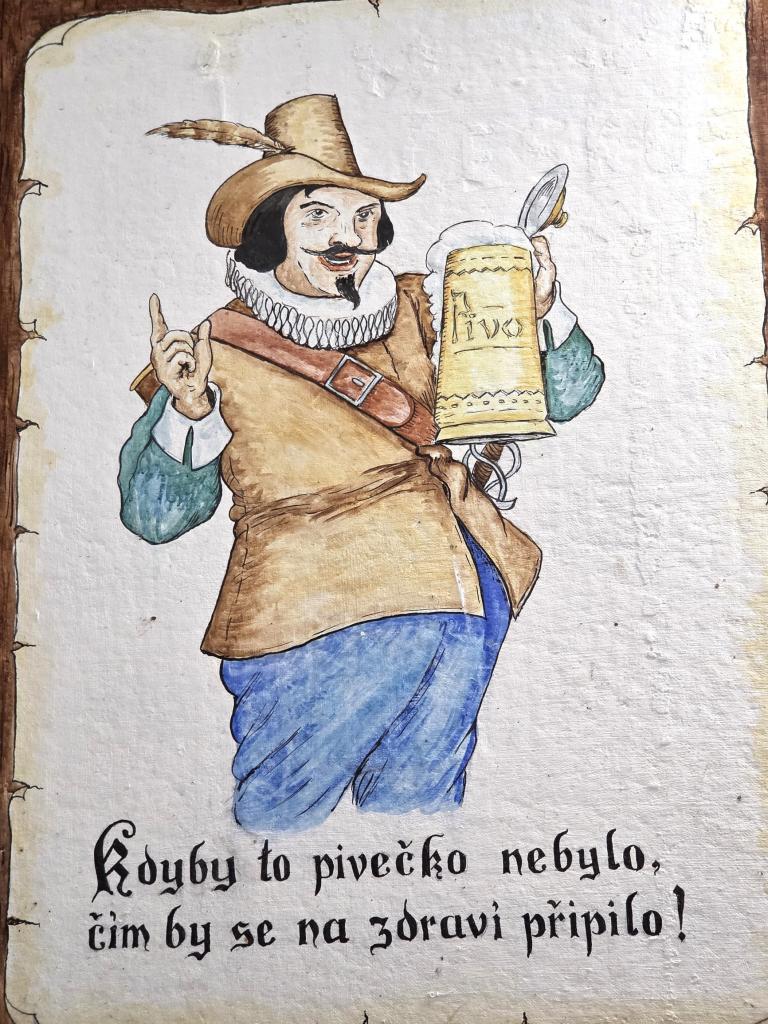 Pivo
Kdyby to pivečko nebylo,
čím by se na zdraví připilo!